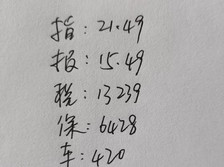 指: 21.49
报: 15.49
税: 13239
保: 6428
车: 420